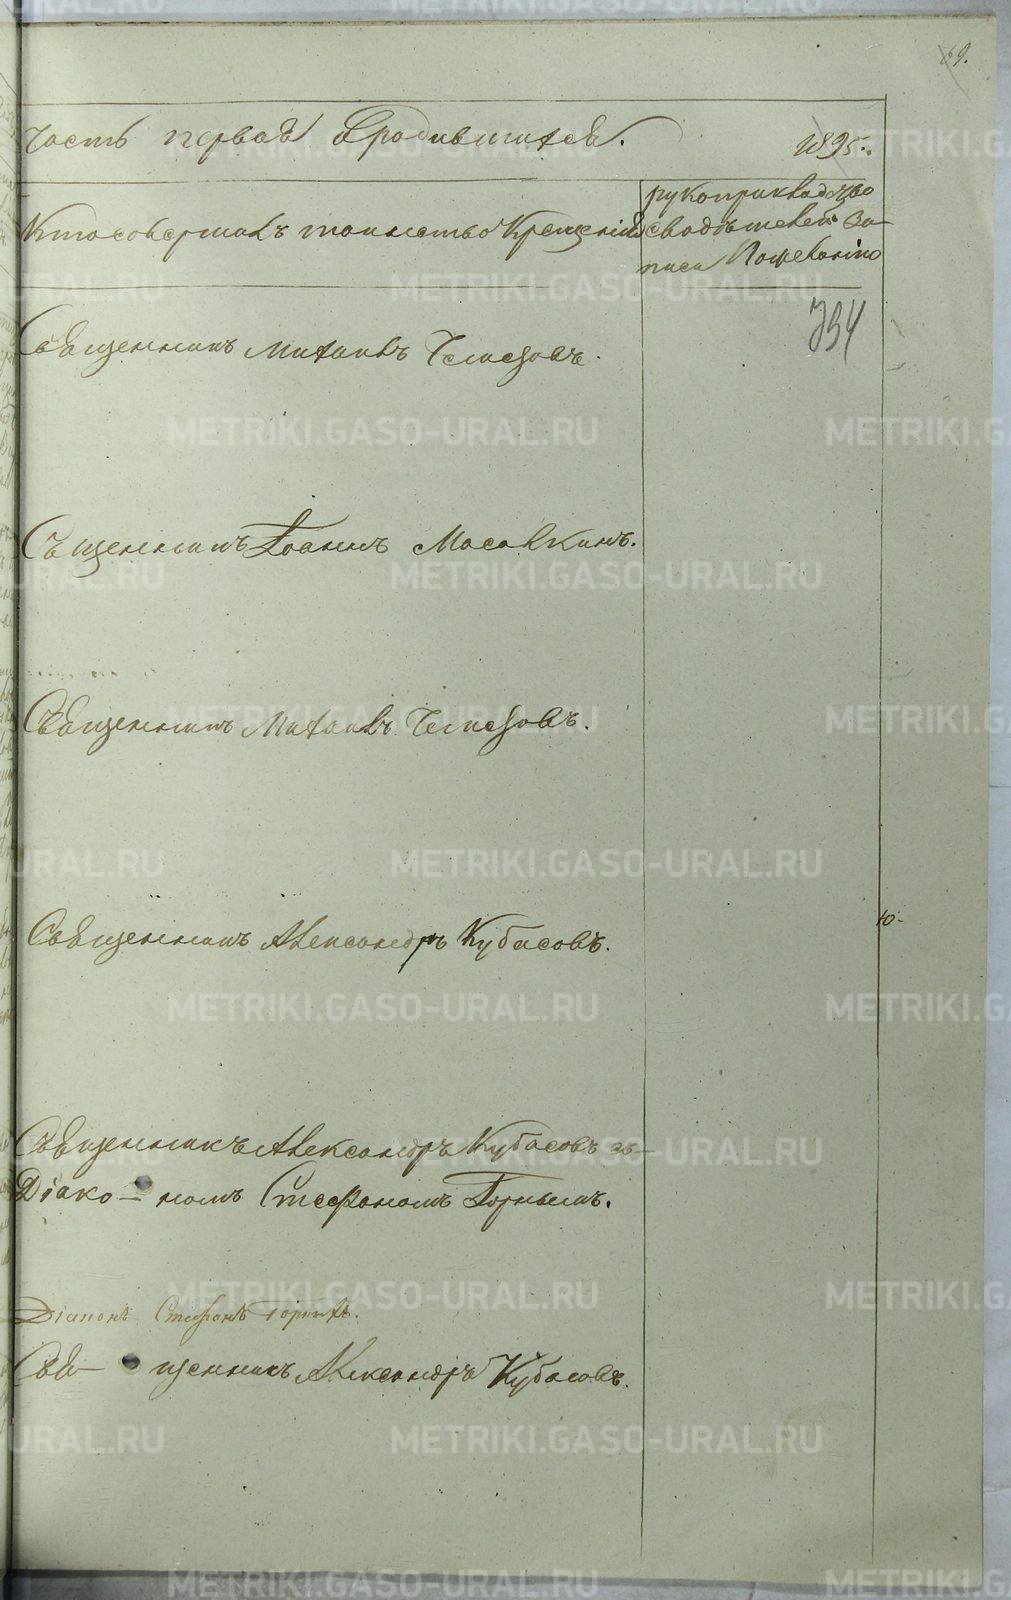 69.
Часть первая о родившихся. 1895.
Кто совершалъ таинство Крещенія
рукоприкладство
свидѣтелей за-
писи по желанію
794
Священникъ Михаилъ Чемезовъ.
Священникъ Іоаннъ Масалкинъ.
Священникъ Михаилъ Чемезовъ.
Священникъ Александръ Кубасовъ.
Священникъ Александръ Кубасовъ съ
Діако-номъ Стефаномъ Горныхъ.
Діаконъ Стефанъ Горныхъ.
Свя-щенникъ Александръ Кубасовъ.
METRIKI.GASO-URAL.RU